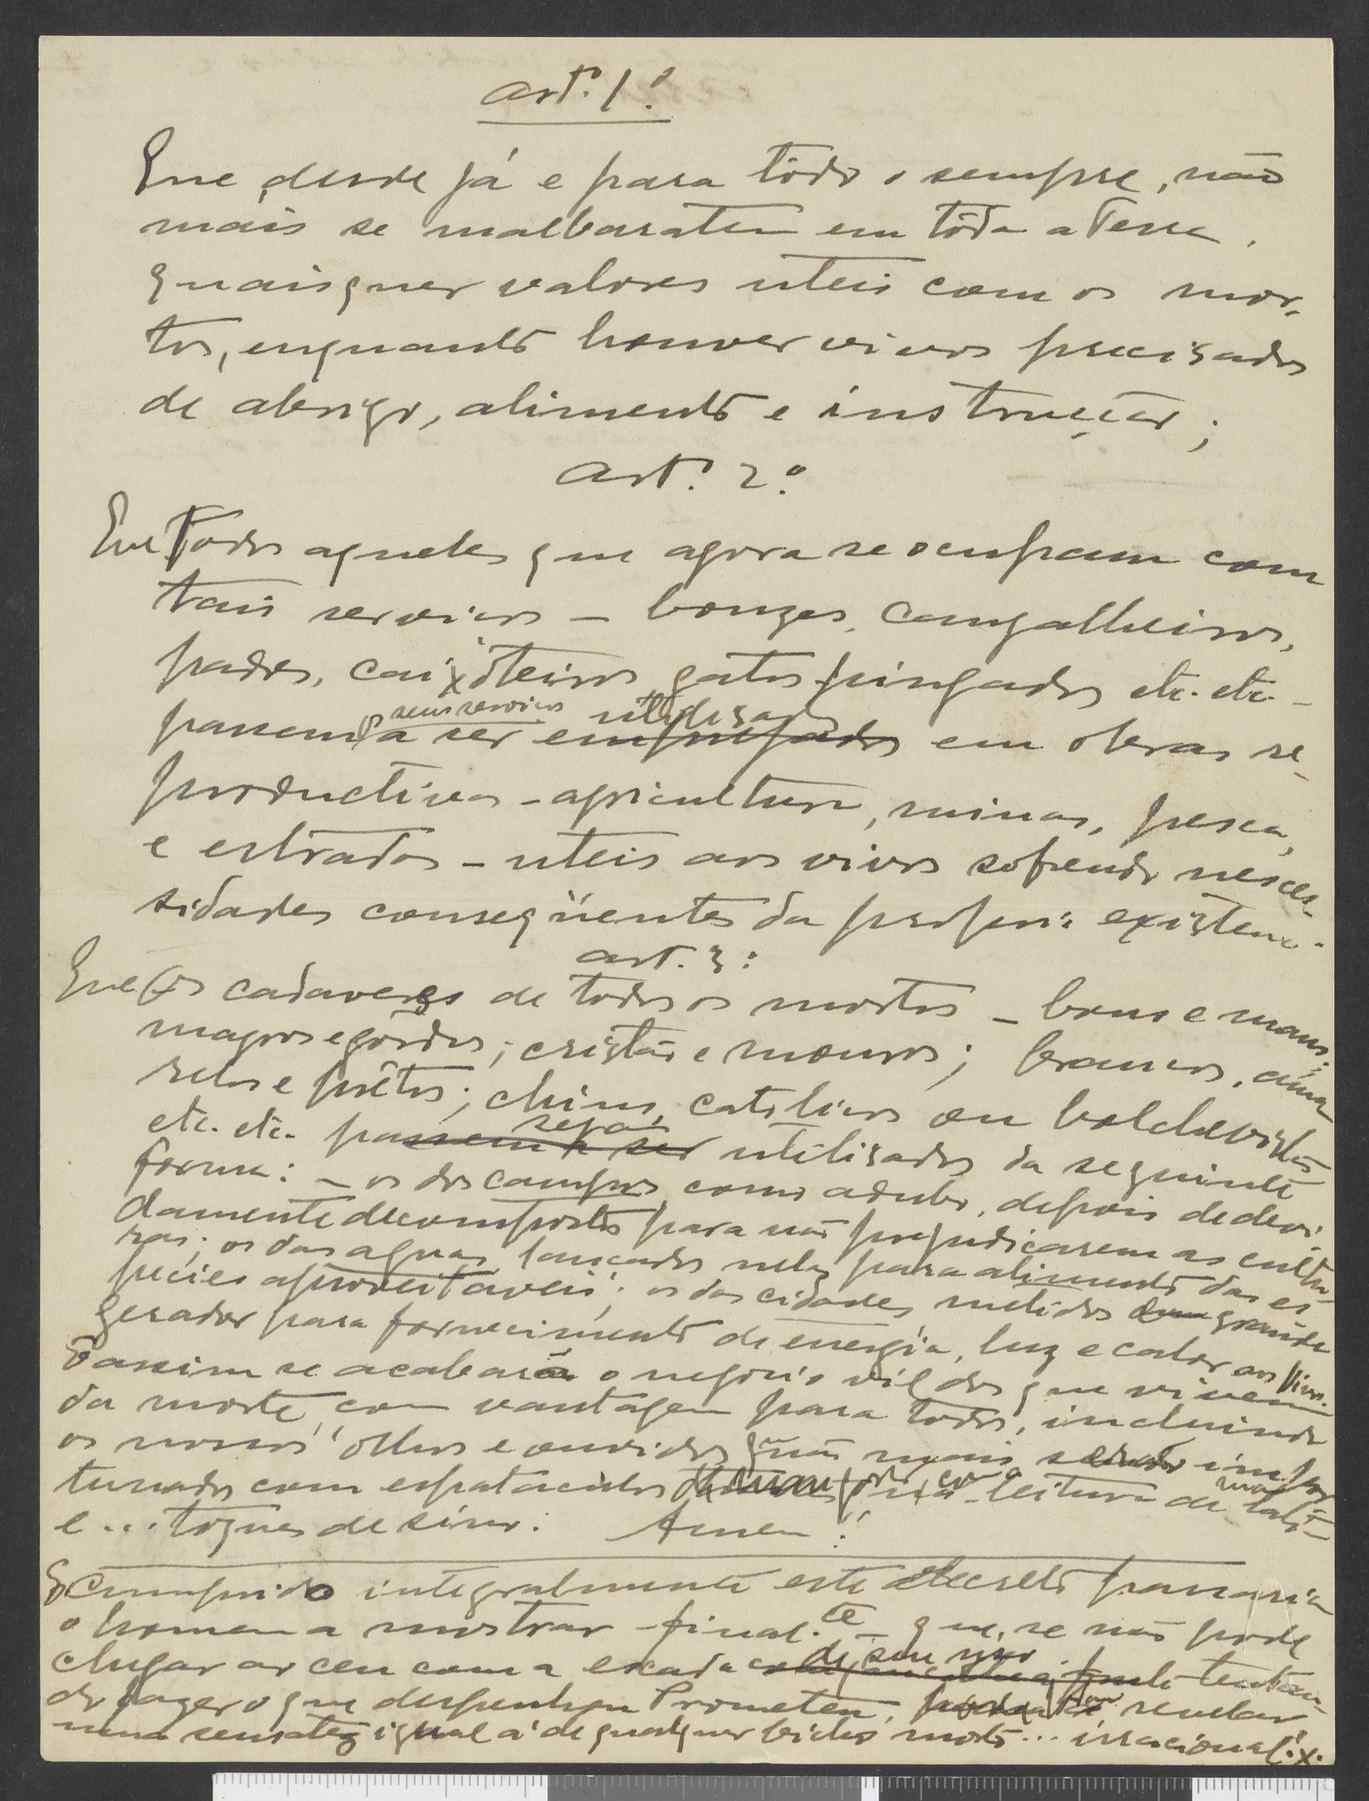 art.º 1.º
Que desde já e para tôdo o sempre, não
mais se malbaratem em tôda a Terra,
quaisquer valores uteis com os mor-
tos, enquanto houver vivos precisados
de abrigo, alimento e instrução;
art.º 2.º
Que Todos aqueles que agora se ocupam com
tais serviços — bonzes, cangalheiros,
padres, caixoteiros, gatos-pingados etc. etc —
seus serviços utilisados
passem a ser empregados em obras re-
productivas - agricultura, minas, pesca,
e estradas - uteis aos vivos sofrendo nesces-
sidades conseqüentes da propria existencia.
art. 3.º
Que os cadaveres de todos os mortos — bons e maus;
magros e gôrdos; cristãos e mouros; brancos, ama-
relos e prêtos; chins, catolicos ou bolchevistas
sejam
etc. etc. passem a ser utilisados da seguinte
forma: — os dos campos como adubo, depois de devi-
damente decompostos para não prejudicarem as cultu-
ras; os das aguas, lançados nelas para alimento das es-
pécies aproveitaveis; os das cidades metidos grande
gerador para fornecimento de energia, luz e calor aos vivos.
E assim se acabará o negocio vil dos que vivem
da morte, com vantagem para todos, incluindo
os nossos olhos e ouvidos que não mais serão impor-
tunados com espetaculos leitura de
e ... toques de sino. Amen!
E cumprido integralmente este decreto passaria
o homem a mostrar final.te — que, se não pode
de seu uso
chegar ao ceu com a escada tentan-
do fazer o que despenhou Prometeu, revelar
uma sensatez igual á de qualquer bicho morto... irracional. x.